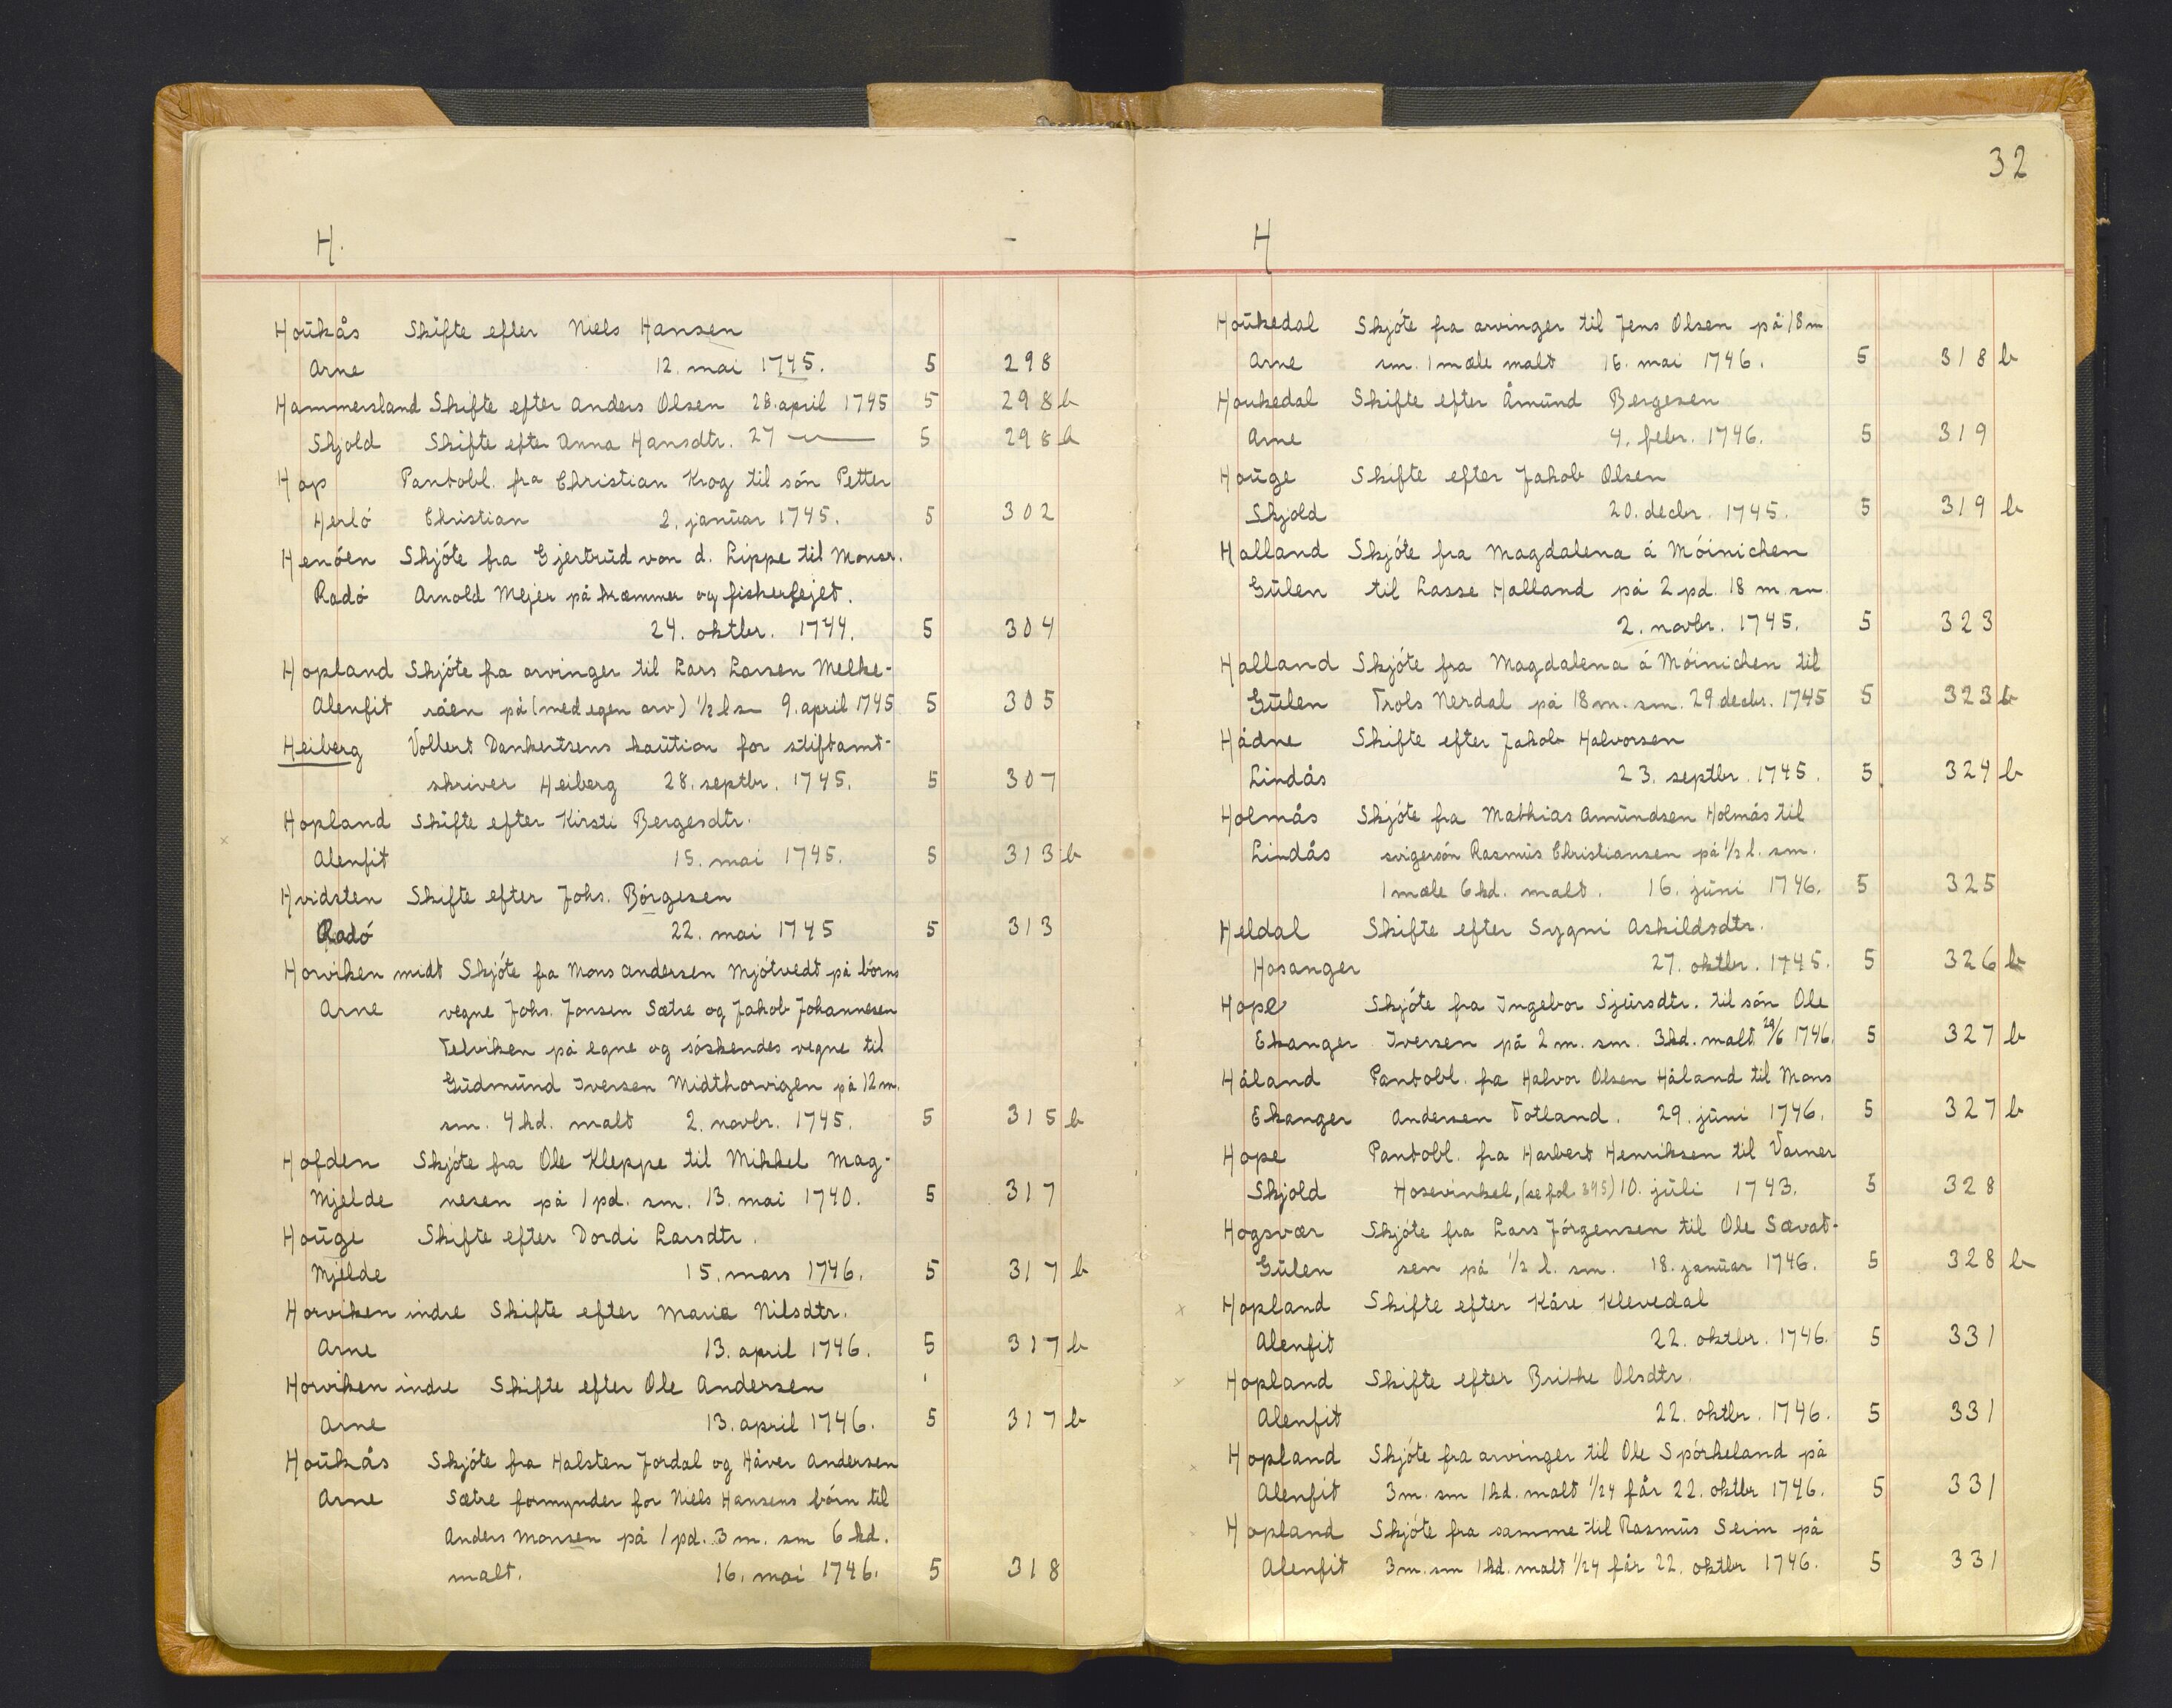 H.
Houkås Skifte efter Niels Hansen
Arne 12. mai 1745. 5 298
Hammersland Skifte efter Anders Olsen 28. april 1745 5 298 b
Skjold Skifte efter Anna Hansdtr. 27 — 5 298 b
Hop Pantobl. fra Christian Krog til són Petter
Herló Christian 2. januar 1745. 5 302
Henóen Skjóte fra Gjertrud von d. Lippe til Monsr.
Radó Arnold Mejer på kræmmer og fiskerlejet.
24. oktbr. 1744. 5 304
Hopland Skjóte fra arvinger til Lars Larsen Melke-
Alenfit råen på (med egen arv) 1/2 l sm 9. april 1745 5 305
Heiberg Vollert Dankertsens kaution for stiftamt-
skriver Heiberg 28. septbr. 1745. 5 307
Hopland Skifte efter Kirsti Bergesdtr.
Alenfit 15. mai 1745. 5 313 b
Hvidsten Skifte efter Johs. Bórgesen
Radó 22. mai 1745 5 313
Horviken midt Skjóte fra Mons Andersen Mjótvedt på bórns
Arne vegne Johs. Jonsen Sætre og Jakob Johannesen
Telviken på egne og sóskendes vegne til
Gudmund Iversen Midthorvigen på 12 m.
sm. 4 kd. malt 2. novbr. 1745. 5 315 b
Hofden Skjóte fra Ole Kleppe til Mikkel Mag-
Mjelde nesen på 1 pd. sm. 13. mai 1740. 5 317
Houge Skifte efter Dordi Larsdtr.
Mjelde 15. mars 1746. 5 317 b
Horviken indre Skifte efter Maria Nilsdtr.
Arne 13. april 1746. 5 317 b
Horviken indre Skifte efter Ole Andersen
Arne 13. april 1746. 5 317 b
Houkås Skjóte fra Halsten Jordal og Håver Andersen
Arne Sætre formynder for Niels Hansens bórn til
Anders Monsen på 1 pd. 3 m. sm 6 kd.
malt. 16. mai 1746. 5 318
32
H
Houkedal Skjóte fra arvinger til Jens Olsen på 18 m
Arne sm. 1 mæle malt 16. mai 1746. 5 318 b
Houkedal Skifte efter Åmund Bergesen
Arne 4. febr. 1746. 5 319
Houge Skifte efter Jakob Olsen
Skjold 20. decbr. 1745. 5 319 b
Halland Skjóte fra Magdalena á Móinichen
Gulen til Lasse Halland på 2 pd. 18 m. sm
2. novbr. 1745. 5 323
Halland Skjóte fra Magdalena á Móinichen til
Gulen Trols Nerdal på 18 m. sm. 29. decbr. 1745 5 323 b
Hådne Skifte efter Jakob Halvorsen
Lindås 23. septbr. 1745. 5. 324 b
Holmås Skjóte fra Mathias Amundsen Holmås til
Lindås svigersón Rasmus Christiansen på 1/2 l. sm.
1 mæle 6 kd. malt. 16. juni 1746. 5 325
Heldal Skifte efter Sygni Askildsdtr.
Hosanger 27. oktbr. 1745. 5 326 b
Hope Skjóte fra Ingebor Sjursdtr. til són Ole
Ekanger Iversen på 2 m. sm. 3 kd. malt 29/6 1746. 5 327 b
Håland Pantobl. fra Halvor Olsen Håland til Mons
Ekanger Andersen Totland. 29. juni 1746. 5 327 b
Hope Pantobl. fra Harbert Henriksen til Varner
Skjold Hosevinkel, (se fol 395) 10. juli 1743. 5 328
Hogsvær Skjóte fra Lars Jórgensen til Ole Sævat-
Gulen sen på 1/2 l. sm. 18. januar 1746. 5 328 b
x Hopland Skifte efter Kåre Klevedal
Alenfit 22. oktbr. 1746. 5 331
x Hopland Skifte efter Brithe Olsdtr.
Alenfit 22. oktbr. 1746. 5 331
x Hopland Skjóte fra arvinger til Ole Spórkeland på
Alenfit 3 m. sm 1 kd. malt 1/24 får 22. oktbr 1746. 5 331
Hopland Skjóte fra samme til Rasmus Seim på
Alenfit 3 m. sm 1 kd. malt 1/24 får 22. oktbr 1746. 5 331